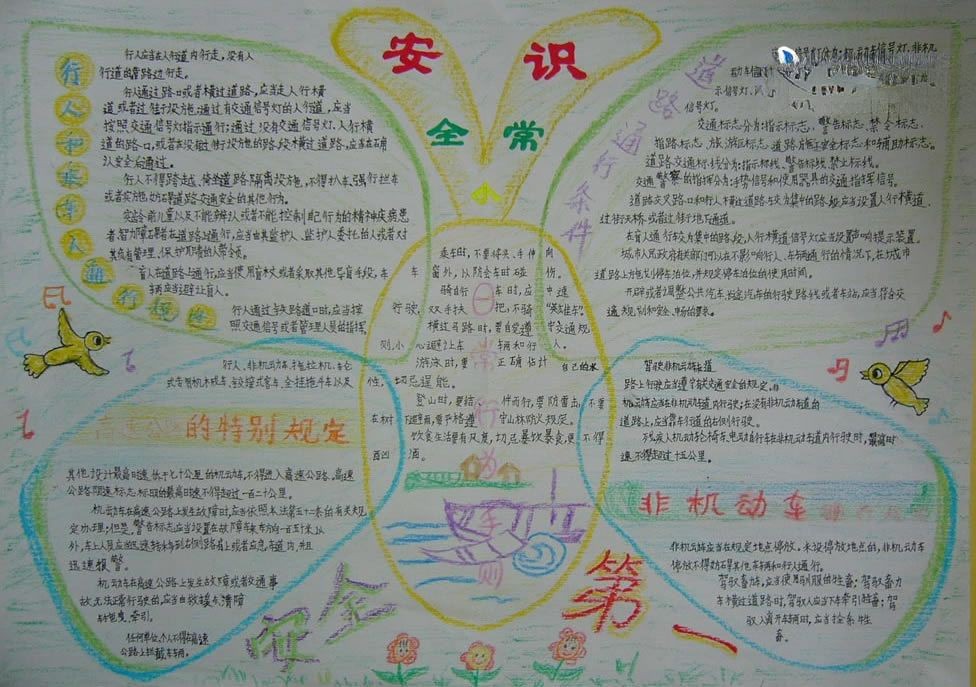 安 识
全 常
小
行人和乘车人通行规定
行人应当在人行道内行走,没有人
行道的靠路边行走。
行人通过路口或者横过道路,应当走人行横
道或者过街设施;通过有交通信号灯的人行道,应当
按照交通信号灯指示通行;通过没有交通信号灯、人行横
道的路口,或者在没有过街设施的路段横过道路,应当在确
认安全后通过。
行人不得跨越、倚坐道路隔离设施,不得扒车、强行拦车
或者实施妨碍道路交通安全的其他行为。
学龄前儿童以及不能辨认或者不能控制自己行为的精神疾病患
者、智力障碍者在道路上通行,应当由其监护人、监护人委托的人或者对
其负有管理、保护职责的人带领。
盲人在道路上通行,应当使用盲杖或者采取其他导盲手段,车
辆应当避让盲人。
行人通过铁路道口时,应当按
照交通信号或者管理人员的指挥
道路通行条件
动车信
示信号灯、
信号灯。
交通标志分为:指示标志、警告标志、禁令标志、
指路标志、旅游区标志、道路施工安全标志和辅助标志。
道路交通标线分为:指示标线、警告标线、禁止标线。
交通警察的指挥分为:手势信号和使用器具的交通指挥信号。
道路交叉路口和行人横过道路较为集中的路段应当设置人行横道、
过街天桥或者过街地下通道。
在盲人通行较为集中的路段,人行横道信号灯应当设置声响提示装置。
城市人民政府有关部门可以在不影响行人、车辆通行的情况下,在城市
道路上施划停车泊位,并规定停车泊位的使用时间。
开辟或者调整公共汽车、长途汽车的行驶路线或者车站,应当符合交
通规划和安全、畅通的要求。
日常行为守则
乘车时,不要将头、手伸向
车窗外,以防会车时碰伤。
骑自行车时,应中速
行驶,双手扶把,不骑“英雄车”。
横过马路时,要自觉遵守交通规
则,小心避让车辆和行人。
游泳时,要正确估计自己的水
性,切忌逞能。
登山时,要结伴而行,要防雷击,不要
在树下避雨,要严格遵守山林防火规定。
饮食生活要有风度,切忌暴饮暴食,更不得
酗酒。
行人、非机动车、拖拉机、轮式
式专用机械车、铰接式客车、全挂拖斗车以及
高速公路的特别规定
其他设计最高时速低于七十公里的机动车,不得进入高速公路。高速
公路限速标志标明的最高时速不得超过一百二十公里。
机动车在高速公路上发生故障时,应当依照本法第五十二条的有关规
定办理;但是,警告标志应当设置在故障车来车方向一百五十米以
外,车上人员应当迅速转移到右侧路肩上或者应急车道内,并且
迅速报警。
机动车在高速公路上发生故障或者交通事
故,无法正常行驶的,应当由救援车、清障
车拖曳、牵引。
任何单位、个人不得在高速
公路上拦截车辆。
驾驶非机动车在道
路上行驶应当遵守有关交通安全的规定。非
机动车应当在非机动车道内行驶;在没有非机动车道的
道路上,应当靠车行道的右侧行驶。
残疾人机动轮椅车、电动自行车在非机动车道内行驶时,最高时
速不得超过十五公里。
非机动车
非机动车应当在规定地点停放。未设停放地点的,非机动车
停放不得妨碍其他车辆和行人通行。
驾驭畜力车,应当使用驯服的牲畜;驾驭畜力
车横过道路时,驾驭人应当下车牵引牲畜;驾
驭人离开车辆时,应当拴系牲
畜。
安全第一